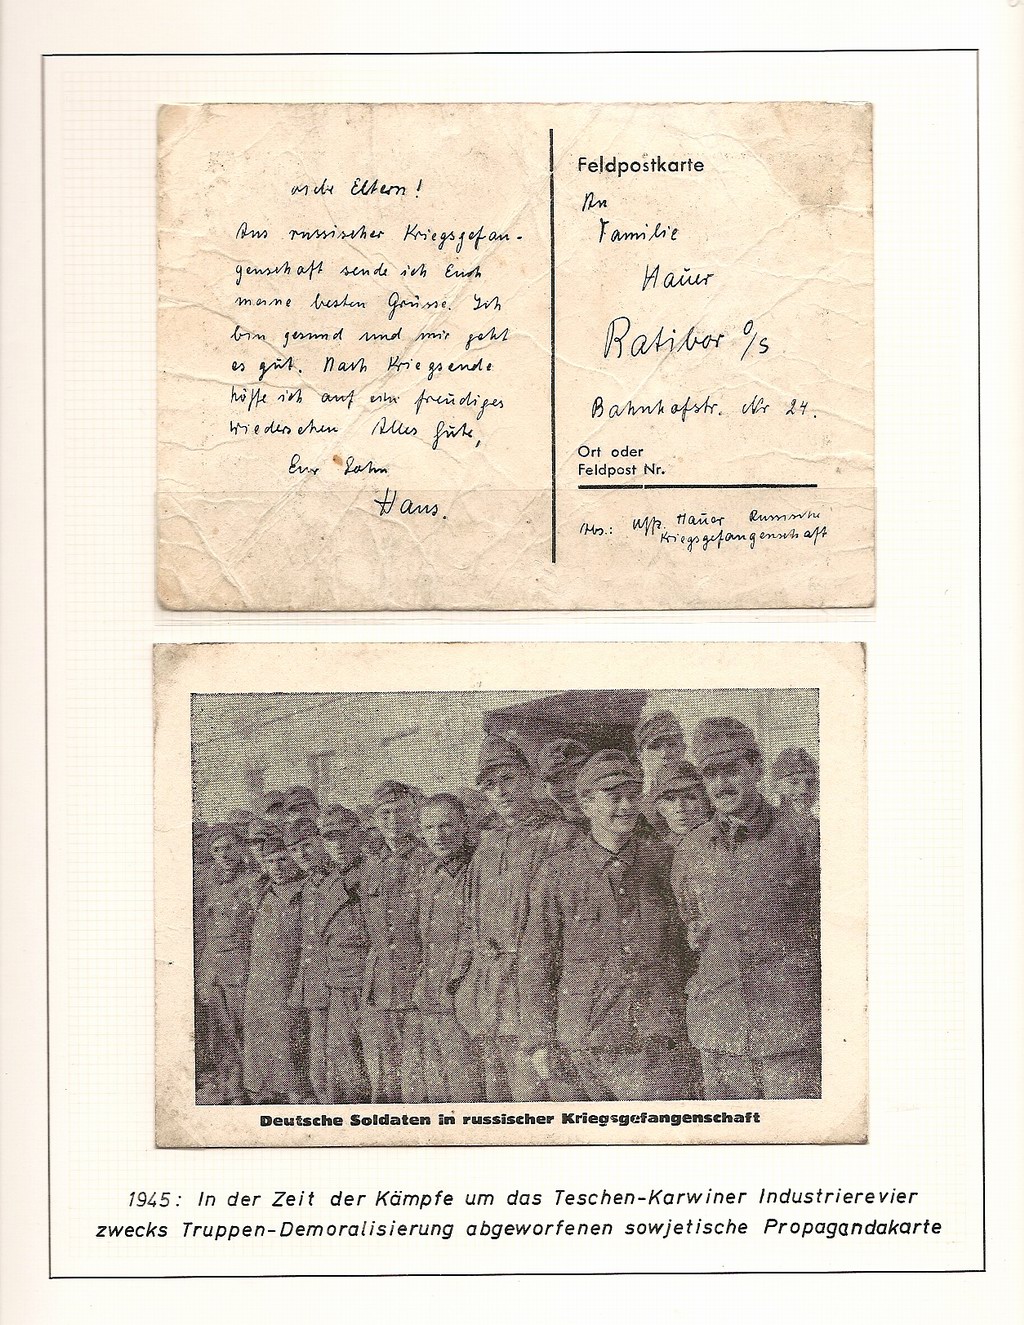 Liebe Eltern!
Aus russischer Kriegsgefan-
genschaft sende ich Euch
meine besten Grüsse. Ich
bin gesund und mir geht
es gut. Nach Kriegsende
hoffe ich auf ein freudiges
Wiedersehen Alles Gute,
Euer Sohn
Hans.
Feldpostkarte
An
Familie
Hauer
Ratibor O/S
Bahnhofstr. Nr 24.
Ort oder
Feldpost Nr.
Abs.: Uffz. Hauer Russische
Kriegsgefangenschaft
Deutsche Soldaten in russischer Kriegsgefangenschaft
1945: In der Zeit der Kämpfe um das Teschen-Karwiner Industrierevier
zwecks Truppen-Demoralisierung abgeworfenen sowjetische Propagandakarte